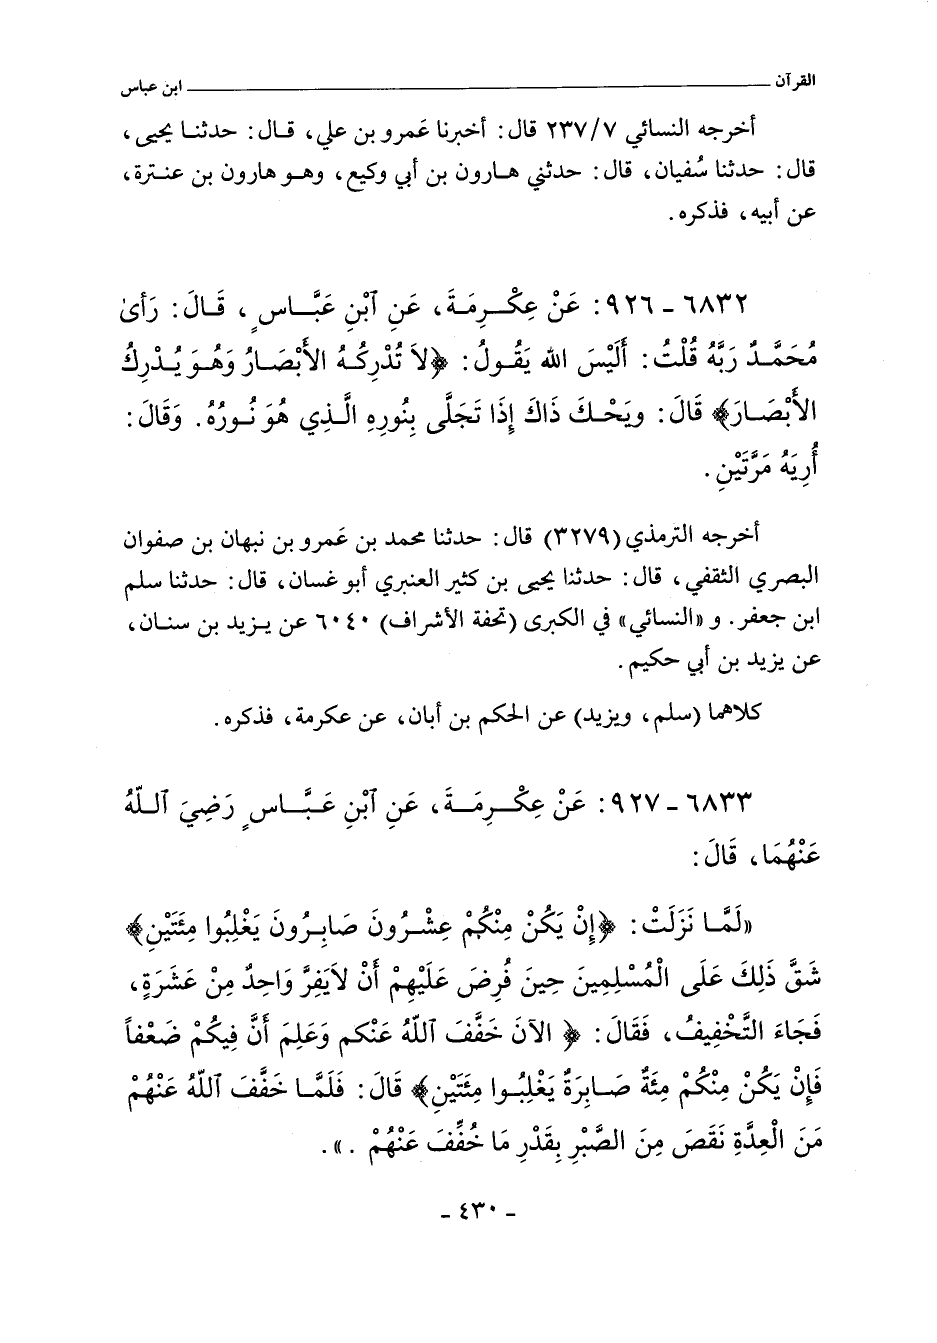 القرآن ــــــــــــــــــــ ابن عباس
أخرجه النسائي ٢٣٧/٧ قال: أخبرنا عَمرو بن علي، قال: حدثنا يحيى،
قال: حدثنا سُفيان، قال: حدثني هارون بن أبي وكيع، وهو هارون بن عنترة،
عن أبيه، فذكره.
٦٨٣٢ - ٩٢٦: عَنْ عِكْرِمَةَ، عَنِ ٱبْنِ عَبَّاسٍ، قَالَ: رَأَىٰ
مُحَمَّدٌ رَبَّهُ قُلْتُ: أَلَيْسَ الله يَقُولُ: ﴿لَا تُدْرِكُهُ الأَبْصَارُ وَهُوَ يُدْرِكُ
الأَبْصَارَ﴾ قَالَ: وَيْحَكَ ذَاكَ إِذَا تَجَلَّى بِنُورِهِ الَّذِي هُوَ نُورُهُ. وَقَالَ:
أُرِيَهُ مَرَّتَيْنِ.
أخرجه الترمذي (٣٢٧٩) قال: حدثنا محمد بن عَمرو بن نبهان بن صفوان
البصري الثقفي، قال: حدثنا يحيى بن كثير العنبري أبو غسان، قال: حدثنا سلم
ابن جعفر. و «النسائي» في الكبرى (تحفة الأشراف) ٦٠٤٠ عن يزيد بن سنان،
عن يزيد بن أبي حكيم.
كلاهما (سلم، ويزيد) عن الحكم بن أبان، عن عكرمة، فذكره.
٦٨٣٣ - ٩٢٧: عَنْ عِكْرِمَةَ، عَنِ ٱبْنِ عَبَّاسٍ رَضِيَ ٱللَّهُ
عَنْهُمَا، قَالَ:
«لَمَّا نَزَلَتْ: ﴿إِنْ يَكُنْ مِنْكُمْ عِشْرُونَ صَابِرُونَ يَغْلِبُوا مِئَتَيْنِ﴾
شَقَّ ذَلِكَ عَلَى الْمُسْلِمِينَ حِينَ فُرِضَ عَلَيْهِمْ أَنْ لَايَفِرَّ وَاحِدٌ مِنْ عَشَرَةٍ،
فَجَاءَ التَّخْفِيفُ، فَقَالَ: ﴿ الآنَ خَفَّفَ ٱللَّهُ عَنْكم وَعَلِمَ أَنَّ فِيكُمْ ضَعْفاً
فَإِنْ يَكُنْ مِنْكُمْ مِئَةٌ صَابِرَةٌ يَغْلِبُوا مِئَتَيْنِ﴾ قَالَ: فَلَمَّا خَفَّفَ ٱللَّهُ عَنْهُمْ
مَنَ الْعِدَّةِ نَقَصَ مِنَ الصَّبْرِ بِقَدْرِ مَا خُفِّفَ عَنْهُمْ .».
- ٤٣٠ -